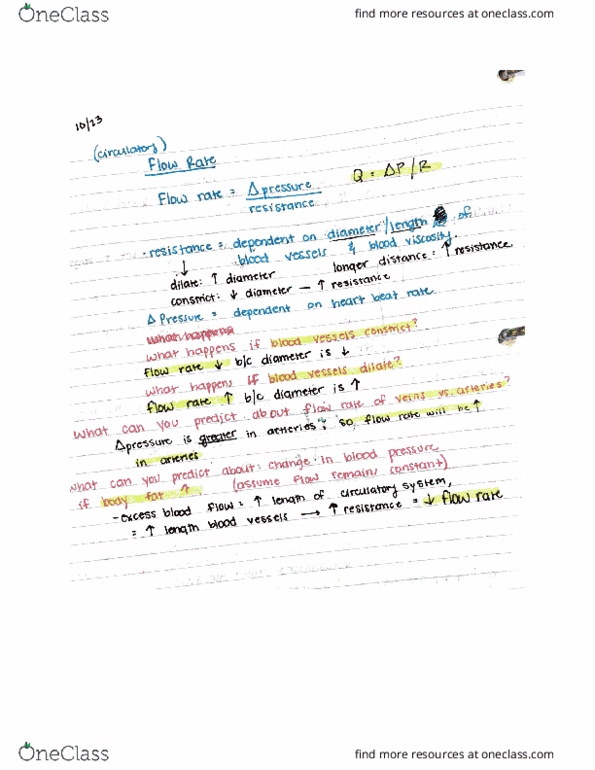 OneClass
find more resources at oneclass.com
10/23
(circulatory)
Flow Rate
Q = ΔP/R
Flow rate = Δpressure
resistance
resistance = dependent on diameter/length of
blood vessels & blood viscosity.
dilate: ↑ diameter longer distance: ↑ resistance
constrict: ↓ diameter → ↑ resistance
Δ Pressure = dependent on heart beat rate
What happens
What happens if blood vessels constrict?
flow rate ↓ b/c diameter is ↓
What happens if blood vessels dilate?
flow rate ↑ b/c diameter is ↑
What can you predict about flow rate of veins vs. arteries?
Δpressure is greater in arteries; so flow rate will be ↑
in arteries
What can you predict about change in blood pressure
if body fat ↑ (assume flow remains constant)
- excess blood flow = ↑ length of circulatory system,
= ↑ length blood vessels → ↑ resistance = ↓ flow rate
OneClass
find more resources at oneclass.com